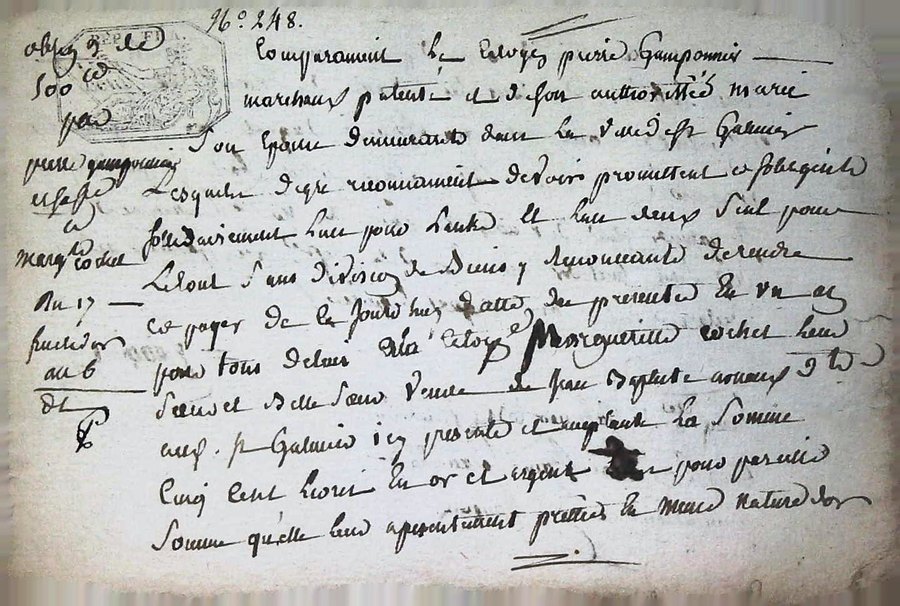 N.º 248.
oblig.on de
500 #
par
pierre gamponnier
et sa fe
a
Marg.te cochet
Du 17
fructidor
an 6
RÉPUB. FRA.
Comparaissent le Citoyen pierre Gamponnier
marchand patenté et de son authorittée marie
son Epouse demeurants dans la ville de St Galmier
Lesquels de gre reconnaissent devoir promettent et s'obligent
sollidairement L'un pour L'autre Et L'un deux seul pour
Le tout sans division de Biens y renonceants de rendre
et payer de ce jourd'hui datte des presentes En un an
pour tous delais a la Citoyenne Marguerite cochet leur
soeur et Belle soeur veuve de jean Baptiste
St Galmier icy presente et acceptante La somme
Cinq Cent Livres En or et argent pour pareille
somme qu'elle leur a presentement prettés En même nature d'or